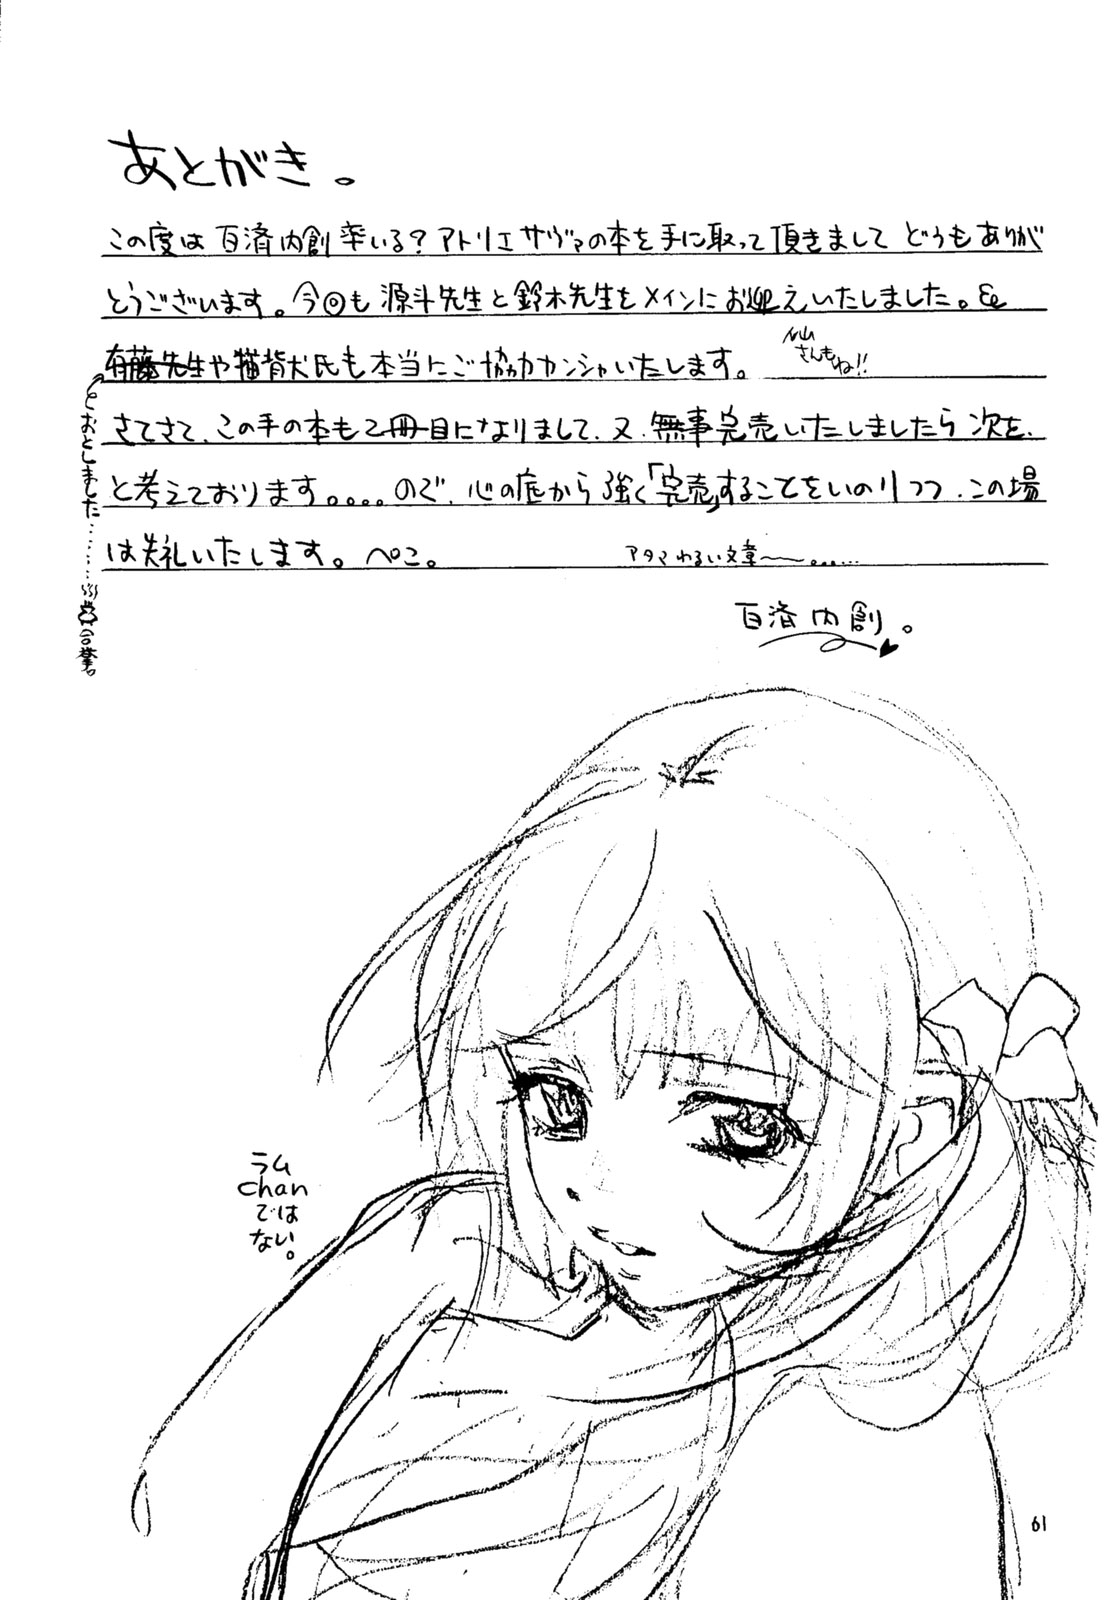 あとがき。
この度は百済内創率いる?アトリエサヴァの本を手に取って頂きまして どうもありが
とうございます。今回も源斗先生と鈴木先生をメインにお迎えいたしました。&
有藤先生や猫背犬氏も本当にご協力カンシャいたします。
さんもね!!
さてさて、この手の本も2冊目になりまして、又、無事完売いたしましたら次を、
と考えております。。。。ので、心の底から強く「完売」することをいのりつつ、この場
は失礼いたします。ぺこ。
アタマわるい文章〜〜。。……
おとしました……
合掌。
百済内創。
ラム
chan
では
ない。
61